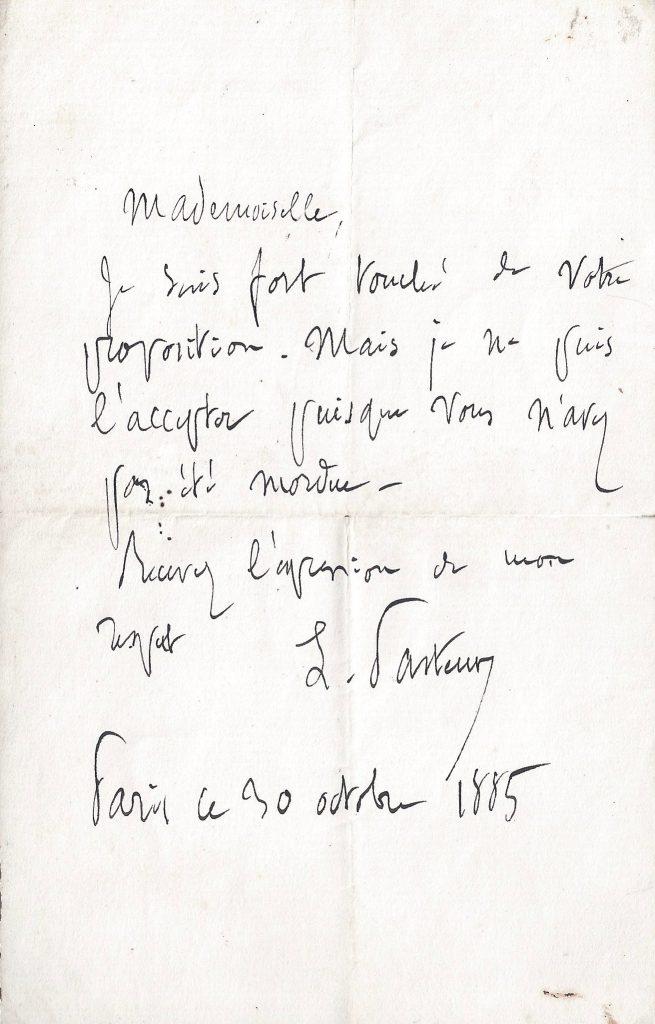 Mademoiselle,
Je suis fort touché de votre
proposition. Mais je ne puis
l'accepter puisque vous n'avez
pas été mordue -
Recevez l'expression de mon
respect
L. Pasteur
Paris ce 30 octobre 1885